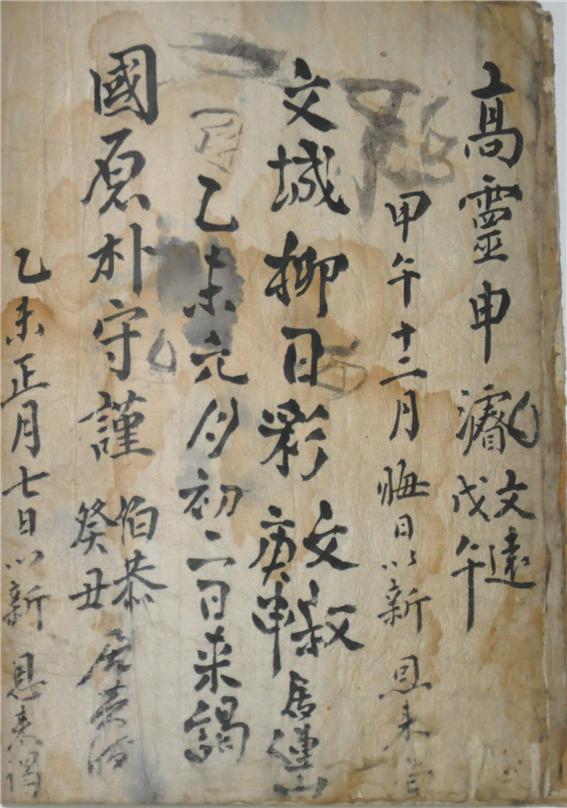 高靈申濬 文遠 戊午
甲午十二月晦日以新恩来
文城柳日彩 文叔 庚申 居連山
乙未元月初二日来謁
國原朴守謹 伯恭 癸丑 居
乙未正月七日以新恩来謁